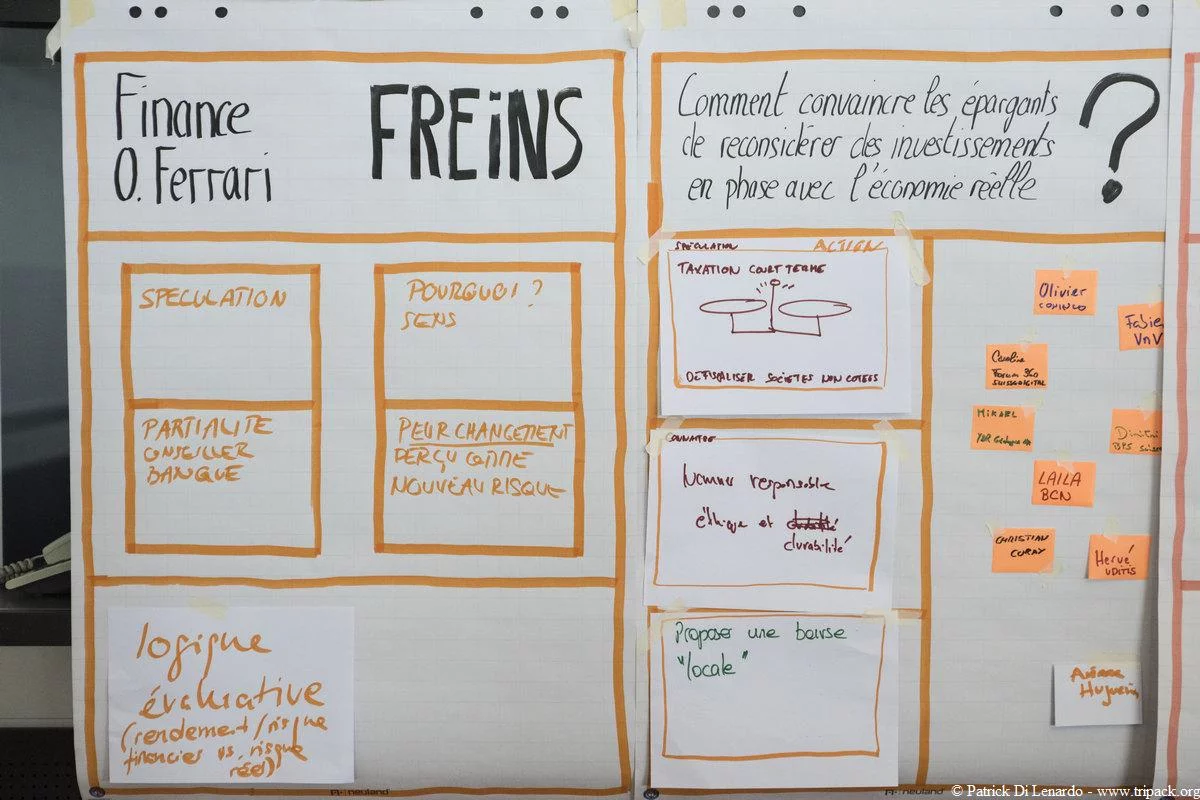 Finance
O. Ferrari
FREiNS
SPECULATION
POURQUOI ?
SENS
PARTIALITE
CONSEILLER
BANQUE
PEUR CHANGEMENT
PERÇU COMME
NOUVEAU RISQUE
logique
évaluative
(rendement/risque
financier vs. risque
réel)
neuland
Comment convaincre les épargants
de reconsidérer des investissements
en phase avec l'économie réelle
?
SPÉCULATION
ACTION
TAXATION COURT TERME
DÉFISCALISER SOCIÉTÉS NON COTÉES
CONNAITRE
responsable
éthique et
durabilité
Proposer une bourse
"locale"
Olivier
Fabie
VnV
Caroline
Forum
SUISSEDIGITAL
MIKAEL
Dimitri
BPS Suisse
LAILA
BCN
CHRISTIAN
Hervé
UDITIS
neuland
© Patrick Di Lenardo - www.tripack.org